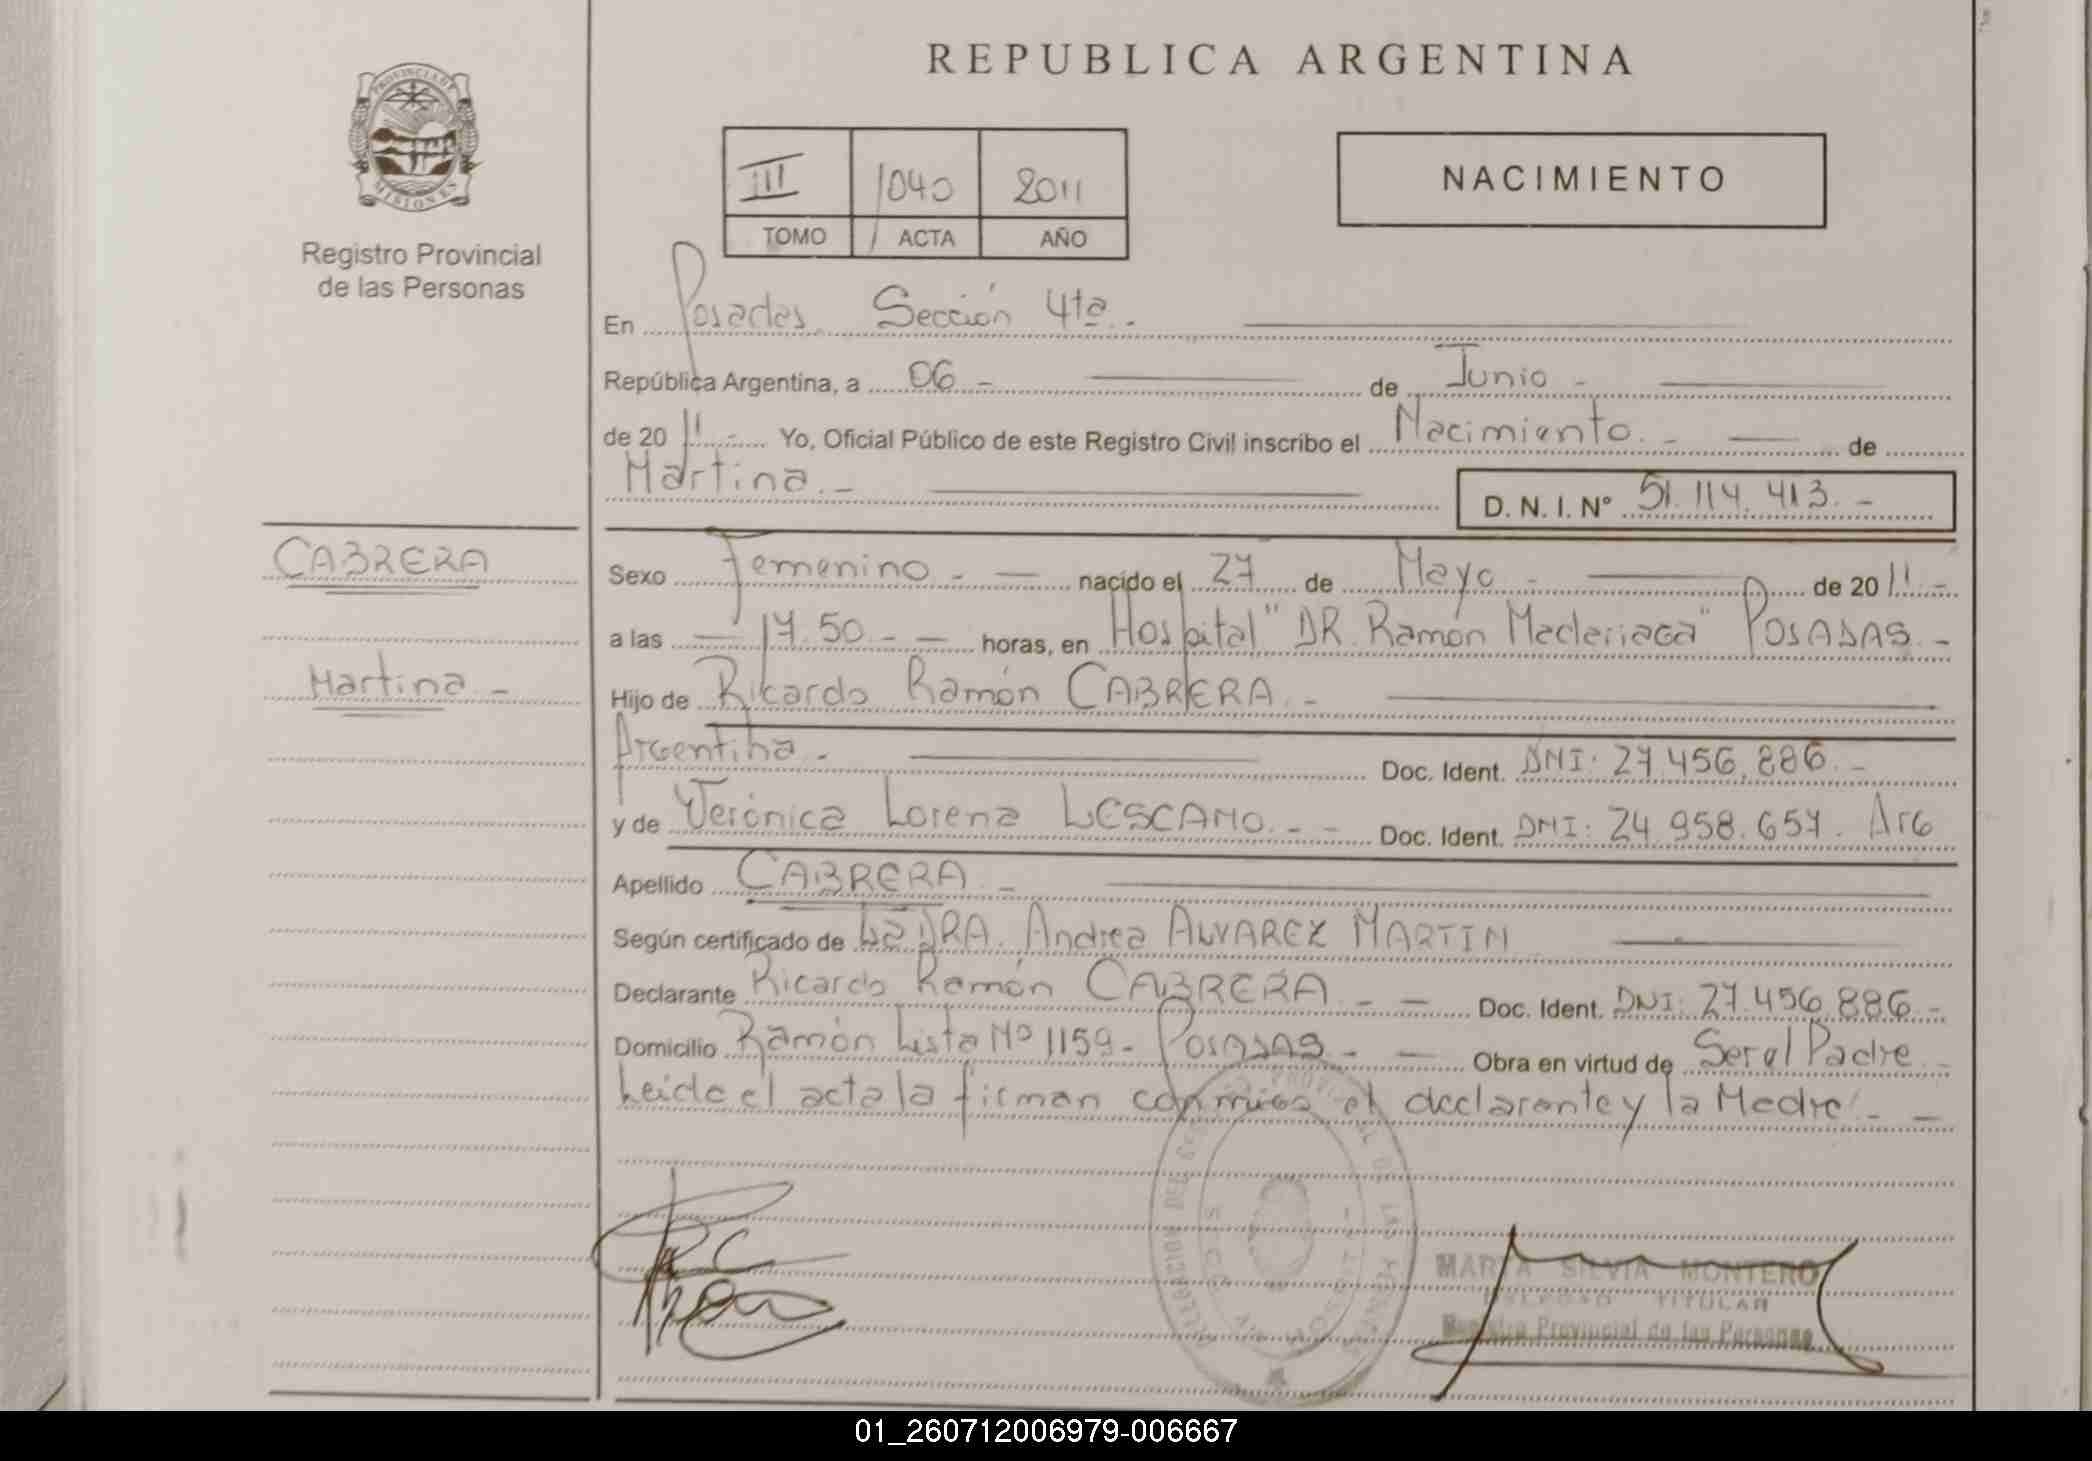 REPUBLICA ARGENTINA
PROVINCIA DE
MISIONES
Registro Provincial
de las Personas
III 1040 2011
TOMO ACTA AÑO
NACIMIENTO
En Posadas Sección 4ta.-
República Argentina, a 06 - de Junio -
de 20 11.- Yo, Oficial Público de este Registro Civil inscribo el Nacimiento.- de
Martina.-
D. N. I. Nº 51.114.413.-
CABRERA
Martina -
Sexo Femenino - nacido el 27 de Mayo - de 20 11.-
a las 17.50 - horas, en Hospital "DR. Ramón Madariaga" POSADAS.-
Hijo de Ricardo Ramón CABRERA.-
Argentina.- Doc. Ident. DNI: 27.456.886.-
y de Verónica Lorena LESCANO.- Doc. Ident. DNI: 24.958.657. Arg
Apellido CABRERA -
Según certificado de La DRA. Andrea ALVAREZ MARTIN
Declarante Ricardo Ramón CABRERA - Doc. Ident. DNI: 27.456.886.-
Domicilio Ramón Lista Nº 1159- POSADAS - Obra en virtud de Ser el Padre -
Leida el acta la firman conmigo el declarante y la Madre.-
MARTA SILVIA MONTERO
TITULAR
Registro Provincial de las Personas
01_260712006979-006667